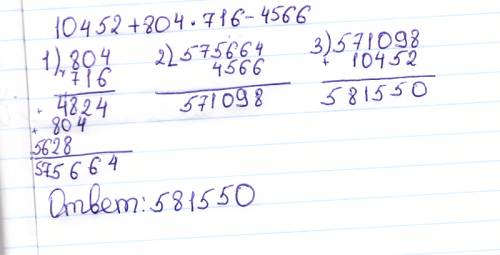 10452+804·716-4566
1) 804
716
4824
+ 804
5628
575664
2) - 575664
4566
571098
3) 571098
+ 10452
581550
Ответ: 581550